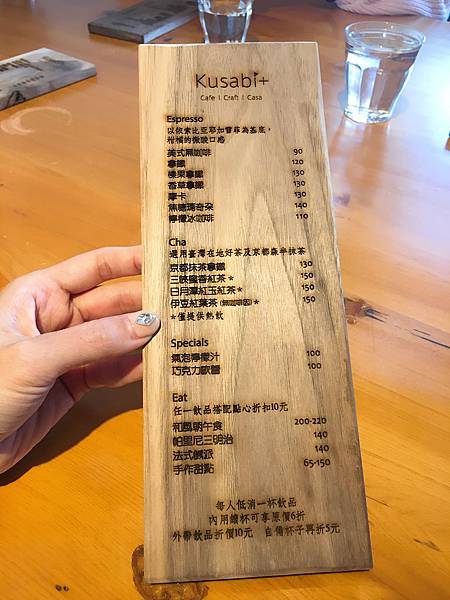 Kusabi+
Cafe | Craft | Casa
Espresso
以依索比亞耶加雪菲為基底，
柑橘的微酸口感
美式黑咖啡 90
拿鐵 120
榛果拿鐵 130
香草拿鐵 130
摩卡 130
焦糖瑪奇朵 140
檸檬冰咖啡 110
Cha
選用臺灣在地好茶及京都森半抹茶
京都抹茶拿鐵 130
三峽蜜香紅茶★ 150
日月潭紅玉紅茶★ 150
伊豆紅葉茶(無咖啡因)★ 150
★僅提供熱飲
Specials
氣泡檸檬汁 100
巧克力歐蕾 100
Eat
任一飲品搭配點心折扣10元
和風朝午食 200-220
帕里尼三明治 140
法式鹹派 140
手作甜點 65-150
每人低消一杯飲品
內用續杯可享原價6折
外帶飲品折價10元 自備杯子再折5元